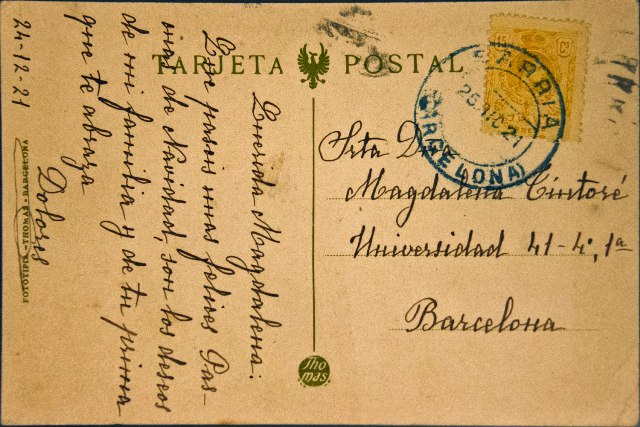 TARJETA POSTAL
Querida Magdalena:
Que paseis unas felices Pas-
cuas de Navidad, son los deseos
de mi familia y de tu prima
que te abraza
Dolors
24-12-21
FOTOTIPIA-THOMAS-BARCELONA
15 CS
SARRIA
25 DIC 21
(BARCELONA)
Srta Dª
Magdalena Cintoré
Universidad 41-4º, 1ª
Barcelona
Thomas